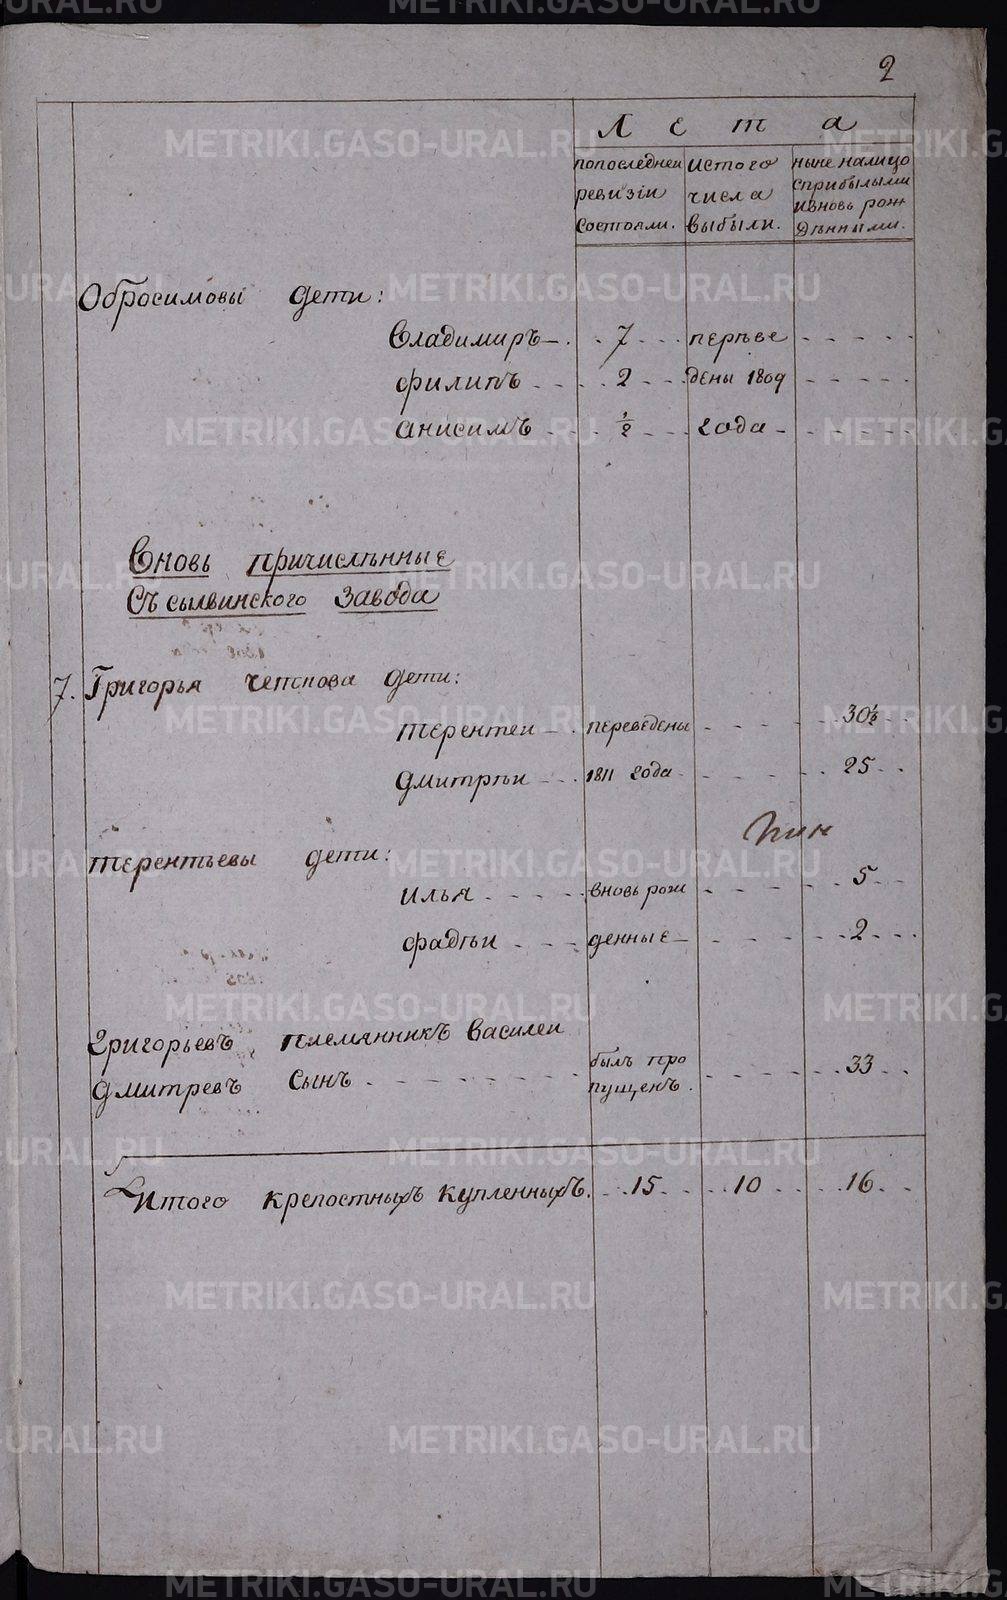 2
Лета
попоследнеи ревизiи состояли.
истого числа выбыли.
ныне налицо сприбылыми ивновь рожденными.
Обросимовы дети:
Владимиръ 7 перъве
филипъ 2 дены 1809
анисимъ 1/2 года
Вновь причислѣнные
Съ сылвинского завода
7. Григорья дети:
терентеи переведены 30 1/2
дмитрѣи 1811 года 25
терентьевы дети:
илья вновь рож 5
фадѣи денные 2
григорьевъ племянникъ василеи
дмитревъ сынъ былъ пропущенъ. 33
Итого крепостныхъ купленныхъ. 15 10 16
METRIKI.GASO-URAL.RU